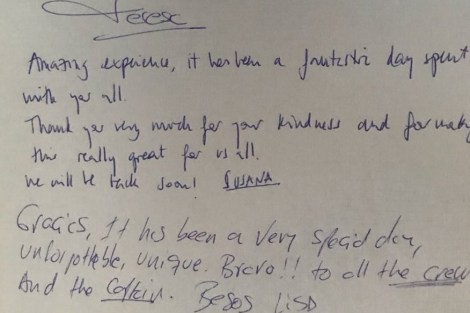 Teresa
Amazing experience, it has been a fantastic day spent
with you all.
Thank you very much for your kindness and for making
this really great for us all.
We will be back soon! SUSANA
Gracias, It has been a very special day,
unforgettable, unique. Bravo!! to all the crew
And the Captain. Besos LISA